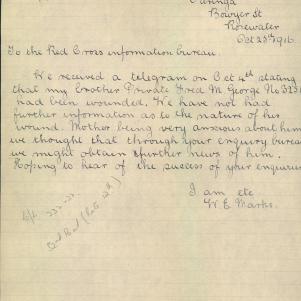 Bowyer St
Rosewater
Oct 23rd 1916
To the Red Cross information bureau.
We received a telegram on Oct 4th stating
that my brother Private Fred M. George No 3251
had been wounded. We have not had
further information as to the nature of his
wound. Mother being very anxious about him
we thought that through your enquiry bureau
we might obtain further news of him.
Hoping to hear of the success of your enquiries
I am etc
W. E. Marks.